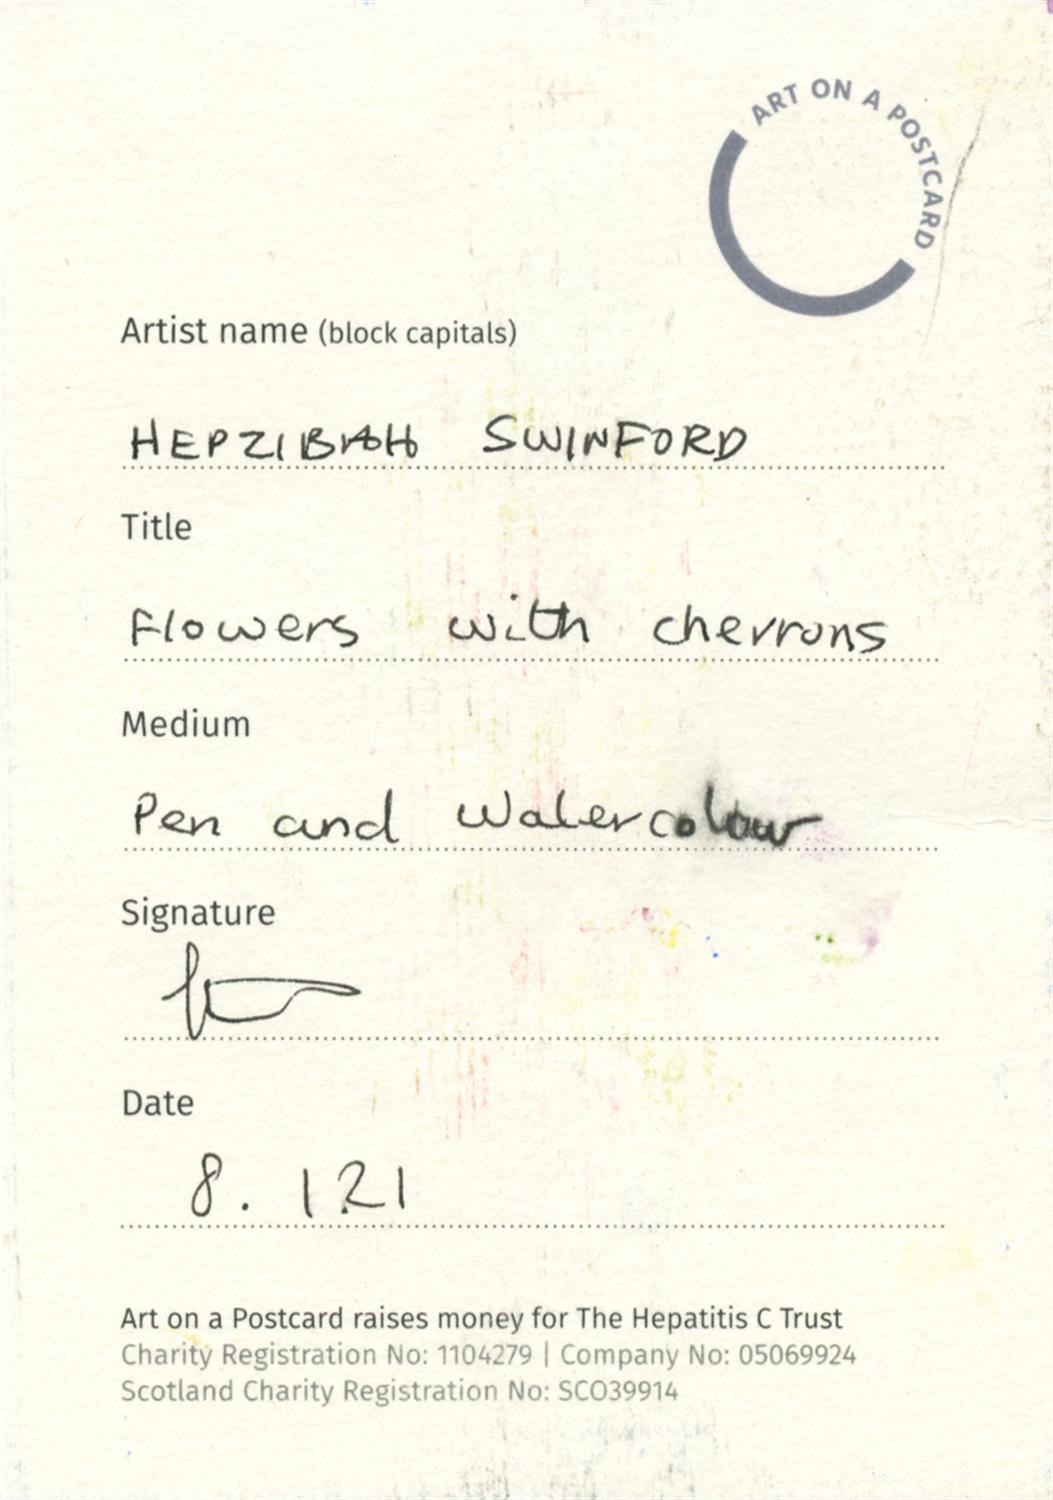 ART ON A POSTCARD
Artist name (block capitals)
HEPZIBAH SWINFORD
Title
Flowers with cherrons
Medium
Pen and Watercolour
Signature
Date
8. 1.21
Art on a Postcard raises money for The Hepatitis C Trust
Charity Registration No: 1104279 | Company No: 05069924
Scotland Charity Registration No: SCO39914